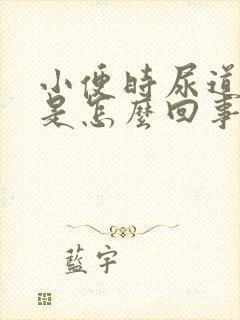 小便時尿道
是怎麼回事
藍宇